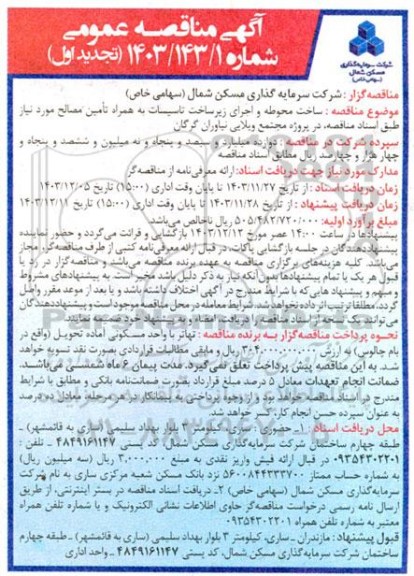 آگهی مناقصه عمومی
شماره ۱۴۰۳/۱۴۳/۱ (تجدید اول)
شرکت سرمایه‌گذاری
مسکن شمال
(سهامی خاص)
مناقصه‌گزار : شرکت سرمایه گذاری مسکن شمال (سهامی خاص)
موضوع مناقصه : ساخت محوطه و اجرای زیرساخت تاسیسات به همراه تأمین مصالح مورد نیاز
طبق اسناد مناقصه، در پروژه مجتمع ویلایی نیاوران گرگان
سپرده شرکت در مناقصه : دوازده میلیارد و سیصد و پنجاه و نه میلیون و ششصد و پنجاه و
چهار هزار و چهارصد ریال مطابق اسناد مناقصه
مدارک مورد نیاز جهت دریافت اسناد: ارائه معرفی‌نامه از مناقصه‌گر
زمان دریافت اسناد : از تاریخ ۱۴۰۳/۱۱/۲۷ تا پایان وقت اداری (۱۵:۰۰) تاریخ ۱۴۰۳/۱۲/۰۵
زمان دریافت پیشنهاد : از تاریخ ۱۴۰۳/۱۱/۲۸ تا پایان وقت اداری (۱۵:۰۰) تاریخ ۱۴۰۳/۱۲/۱۱
مبلغ برآورد اولیه: ۵۰۵/۴۸۲/۷۲۰/۰۰۰ ریال ناخالص می‌باشد.
پیشنهادها در ساعت ۱۴:۰۰ عصر مورخ ۱۴۰۳/۱۲/۱۲ بازگشایی و قرائت می‌گردد و حضور نماینده
پیشنهاددهندگان در جلسه بازگشایی پاکات، در قبال ارائه معرفی‌نامه کتبی از طرف مناقصه‌گر، مجاز
می‌باشد. کلیه هزینه‌های برگزاری مناقصه به عهده برنده مناقصه می‌باشد و مناقصه‌گزار در رد یا
قبول هر یک یا تمام پیشنهادها بدون آنکه نیاز به ذکر دلیل باشد مخیر است. به پیشنهادهای مشروط
و مبهم و پیشنهاد هایی که با شرایط مندرج در آگهی اختلاف داشته باشد و یا بعد از موعد مقرر واصل
گردد، مطلقا ترتیب اثر داده نخواهد شد. شرایط معامله در محل مناقصه موجود است و پیشنهاددهندگان
می‌توانند نسخه‌ای از اسناد مناقصه را دریافت، امضاء و به پیشنهاد خود ضمیمه نمایند.
نحوه پرداخت مناقصه‌گزار به برنده مناقصه : تهاتر با واحد مسکونی آماده تحویل (واقع در
بام چالوس) به ارزش ریال و مابقی مطالبات قراردادی بصورت نقد تسویه خواهد
شد. به این مناقصه پیش پرداخت تعلق نمی‌گیرد. مدت پیمان ۶ ماه شمسی می‌باشد.
ضمانت انجام تعهدات معادل ۵ درصد مبلغ قرارداد بصورت ضمانت‌نامه بانکی و مطابق با شرایط
مندرج در اسناد مناقصه خواهد بود و از وجوه پرداختی به پیمانکار در هر مرحله معادل ده درصد
به عنوان سپرده حسن انجام کار، کسر خواهد شد.
محل دریافت اسناد : ۱_ حضوری: ساری، کیلومتر ۳ بلوار بهداد سلیمی (ساری به قائمشهر) _
طبقه چهارم ساختمان شرکت سرمایه‌گذاری مسکن شمال، کد پستی ۴۸۴۹۱۶۱۱۴۷ _ تلفن :
۰۹۳۵۴۳۰۲۲۰۱ در قبال ارائه فیش واریز نقدی به مبلغ ۳,۰۰۰,۰۰۰ ریال (سه میلیون ریال)
به شماره حساب ممتاز ۵۶۰۰۸۴۴۳۳۳۷۰۰ نزد بانک مسکن شعبه مرکزی ساری به نام شرکت
سرمایه‌گذاری مسکن شمال (سهامی خاص) ۲_ دریافت اسناد مناقصه در بستر اینترنتی، از طریق
ارسال نامه رسمی درخواست مناقصه‌گر حاوی اطلاعات نشانی الکترونیک و یا شماره تلفن همراه
معتبر به شماره تلفن همراه ۰۹۳۵۴۳۰۲۲۰۱
قبول پیشنهاد : مازندران _ ساری، کیلومتر ۳ بلوار بهداد سلیمی (ساری به قائمشهر) _ طبقه چهارم
ساختمان شرکت سرمایه‌گذاری مسکن شمال، کد پستی ۴۸۴۹۱۶۱۱۴۷ _ واحد اداری